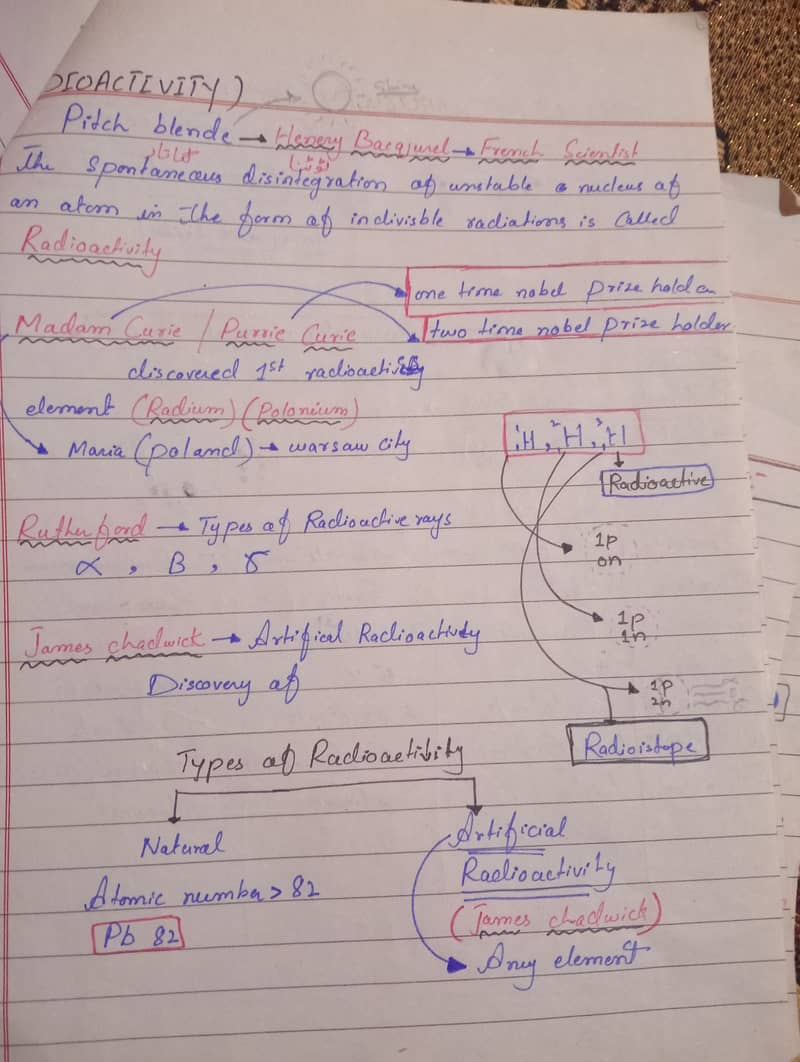 DIOACTIVITY)
Shiny
Pitch blende → Henery Bacqjurel → French Scientist
اچانک ٹوٹنا
The spontaneous disintegration of unstable nucleus of
an atom in the form of indivisble radiations is Called
Radioactivity
one time nobel Prize holder
Madam Curie / Purrie Curie
two time nobel prize holder
discovered 1st radioactive
element (Radium) (Polonium)
¹H, ²H, ³H
Maria (poland) → warsaw city
Radioactive
Rutherford → Types of Radioactive rays
1P
0n
α , B , γ
1P
1n
James chadwick → Artifical Radioactivity
Discovery of
1P
2n
Radioistope
Types of Radioactivity
Natural
Artificial
Radioactivity
Atomic number > 82
(James chadwick)
Pb 82
Any element